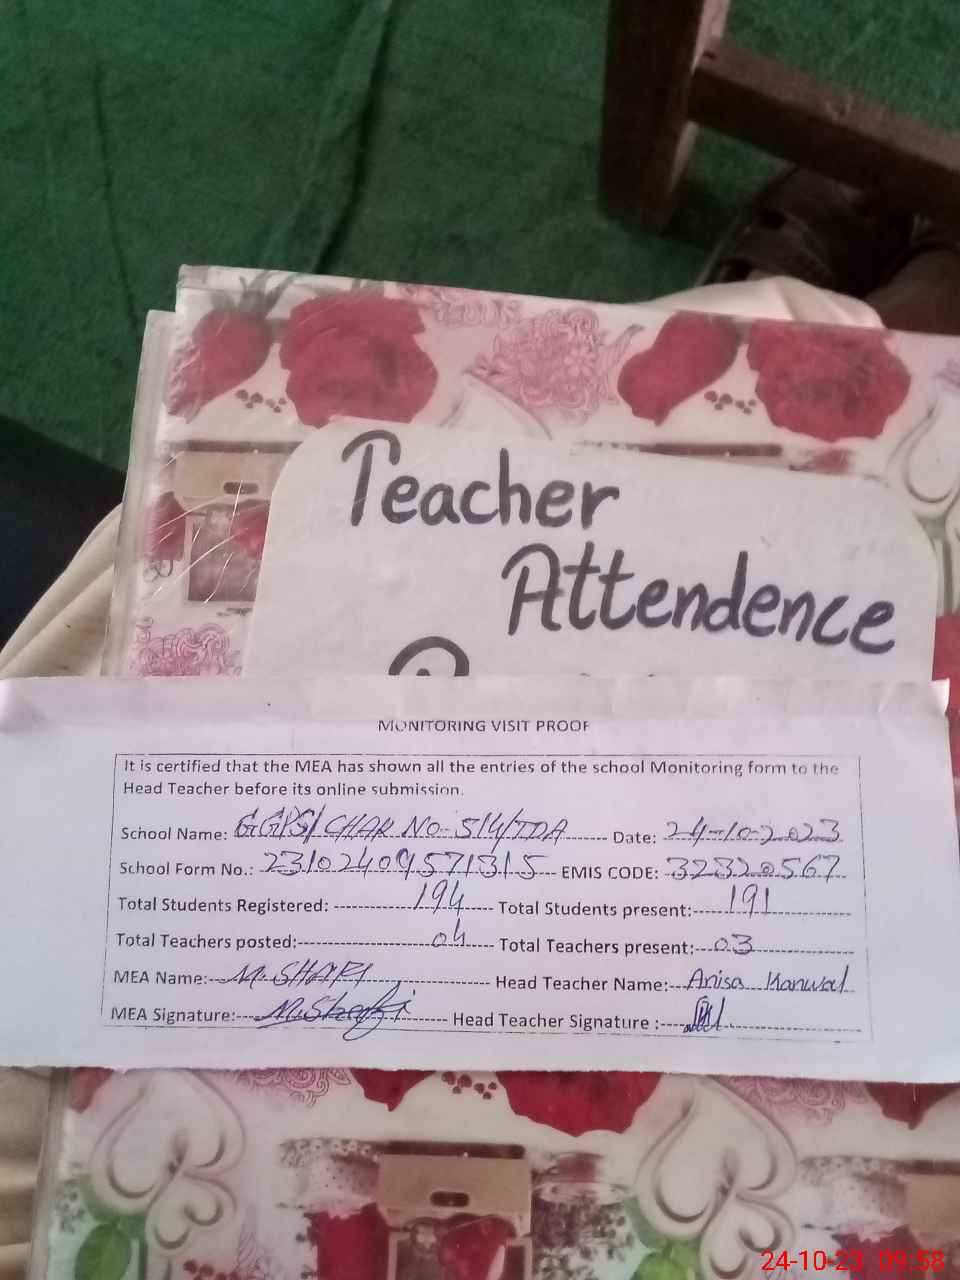 Teacher
Attendence
MONITORING VISIT PROOF
It is certified that the MEA has shown all the entries of the school Monitoring form to the
Head Teacher before its online submission.
School Name: GGPS/ CHAK NO- 514/TDA Date: 24-10-2023
School Form No.: 23102409571315 EMIS CODE: 32320567
Total Students Registered: 194 Total Students present: 191
Total Teachers posted: 04 Total Teachers present: 03
MEA Name: M. SHAFI Head Teacher Name: Anisa Kanwal
MEA Signature: M. Shafi Head Teacher Signature :
24-10-23 09:58